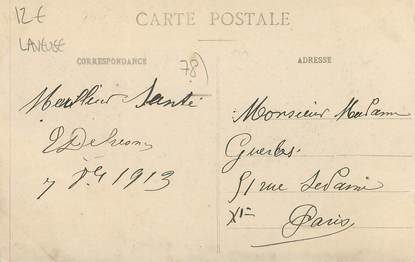 12€
LAVEUSE
CARTE POSTALE
78
CORRESPONDANCE
ADRESSE
Meilleur Santé
7 1913
Monsieur Madame
51 rue Sedaine
XIe
Paris